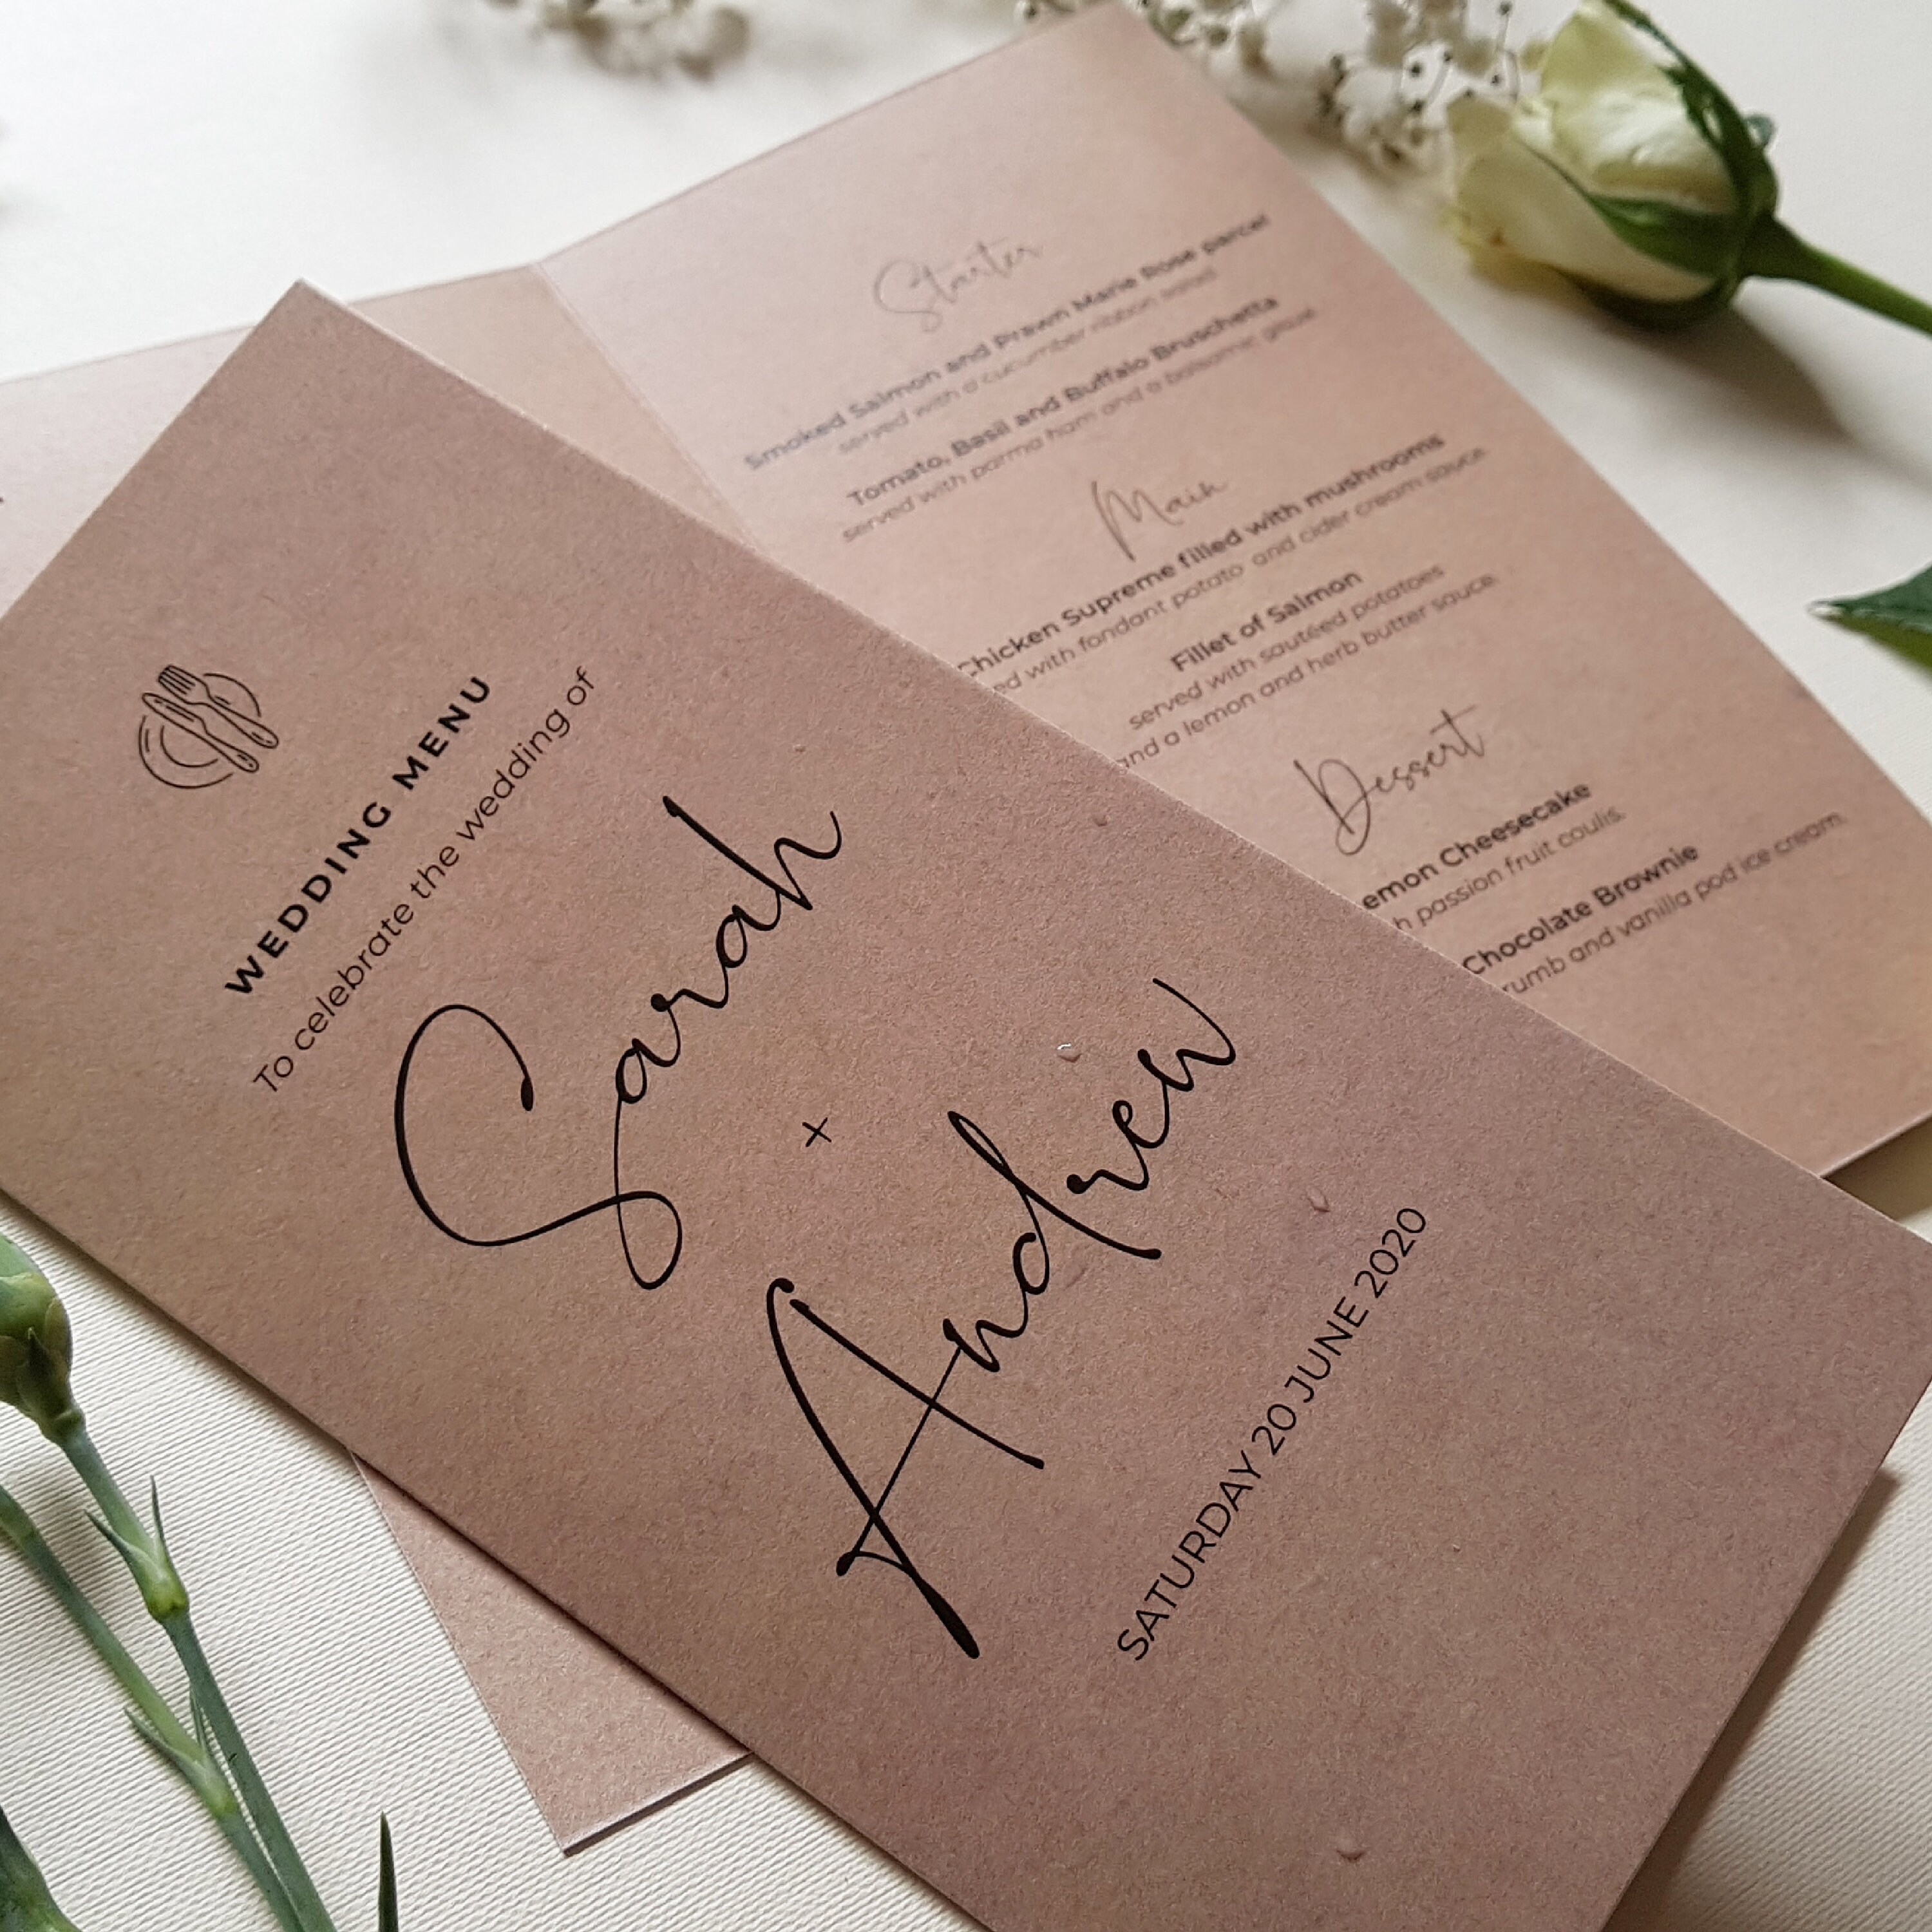 WEDDING MENU
To celebrate the wedding of
Sarah
+
Andrew
SATURDAY 20 JUNE 2020
Starter
Smoked Salmon and Prawn Marie Rose parcel
served with a cucumber ribbon salad
Tomato, Basil and Buffalo Bruschetta
served with parma ham and a balsamic glaze
Main
Chicken Supreme filled with mushrooms
with fondant potato and cider cream sauce
Fillet of Salmon
served with sautéed potatoes
and a lemon and herb butter sauce
Dessert
Cheesecake
passion fruit coulis.
Chocolate Brownie
and vanilla pod ice cream